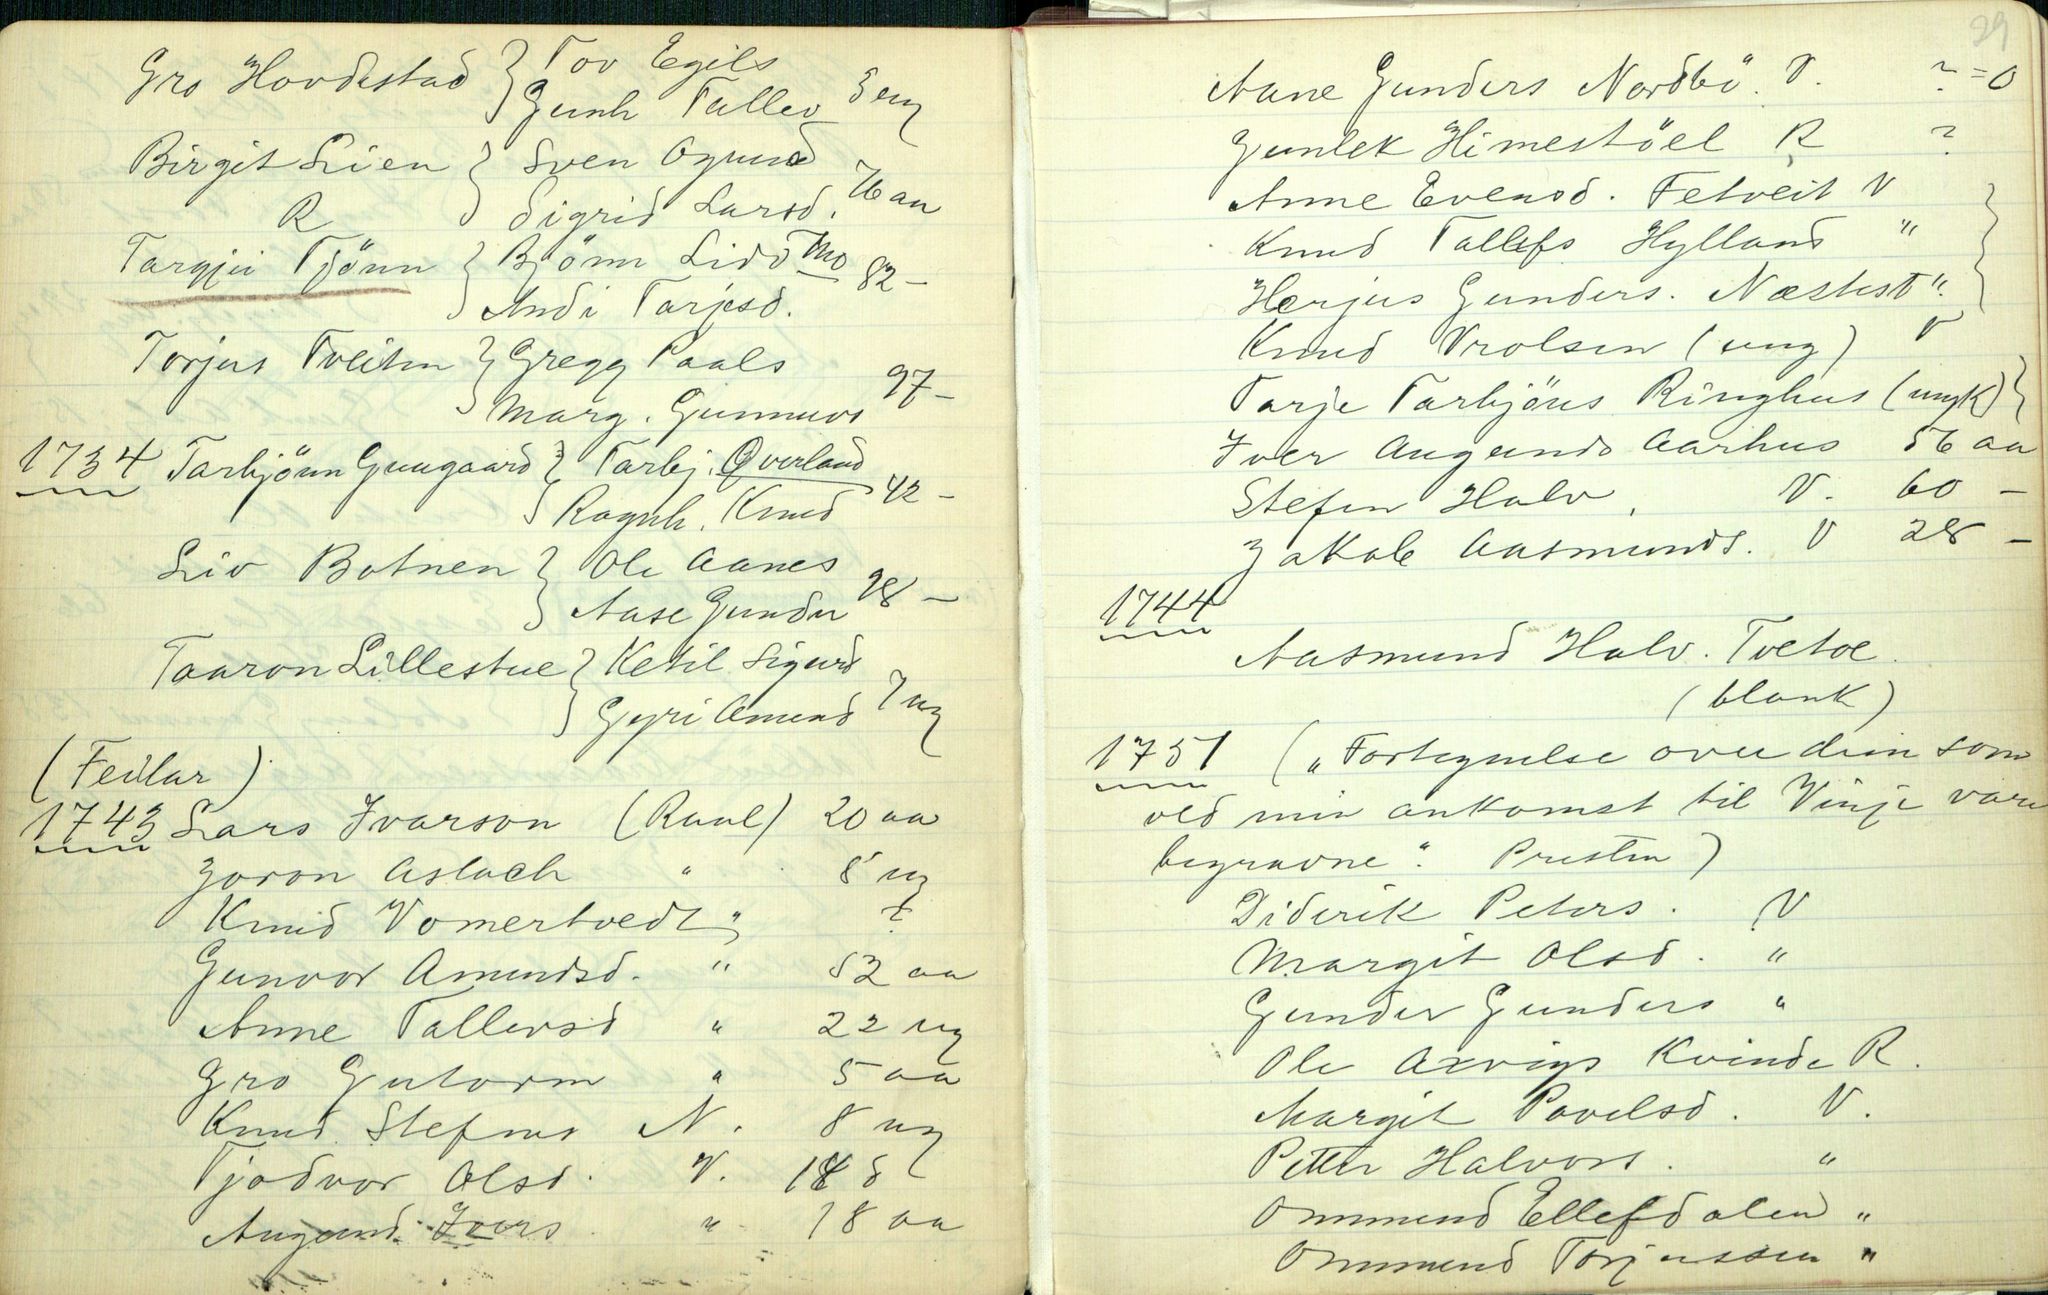 Gro Hovdestad } Tov Egils
Gunh Tallev 3 ug
Birgit Lien } Sven Ogund
R Sigrid Larsd. 76 aa
Targjei Tjönn } Björn Lid Mo 82 –
Andi Tarjesd.
Torjus Tveiten } Gregg Paals
Marg. Gunnuvs 97 –
1734 Tarbjönn Gungaard } Tarbj. Överland
Ragnh. Knud 42 –
Liv Botnen } Ole Aanes
Aase Gunder 98 –
Taaron Lillestue } Ketil Sigurd
Gyri Amund 7 ug
(Feilar)
1743 Lars Ivarson (Raul) 20 aa
Joron Aslach " 8 ug
Knud Vomertvedt " ?
Gunvor Amundsd. " 52 aa
Anne Tallevsd " 22 ug
Gro Gutorm " 5 aa
Knud Stefnus N. 8 ug
Tjodvor Olsd. V. 14 d
Augund Ivers " 18 aa
39
Aane Gunders Nordbö. V. ? = 0
Gunlek Himestöel R ?
Anne Evensd. Fetveit V
Knud Tallefs Hylland "
Herjus Gunders. Næstest ".
Knud Vrolsen (ung) V
Tarje Tarbjöns Ringhus (ungk)
Iver Augunds Aarhus 56 aa
Stefen Halv. V. 60 –
Jakob Aasmunds. V 28 –
1744
Aasmund Halv. Tvetoe.
(blank)
1751 („Fortegnelse over dem som
ved min ankomst til Vinje vare
begravne". Presten)
Diderik Peters. V
Margit Olsd. "
Gunder Gunders "
Ole Axvigs Kvinde R.
Margit Povelsd. V.
Petter Halvors. "
Ommund Ellefsdalen "
Ommund Torjussen "